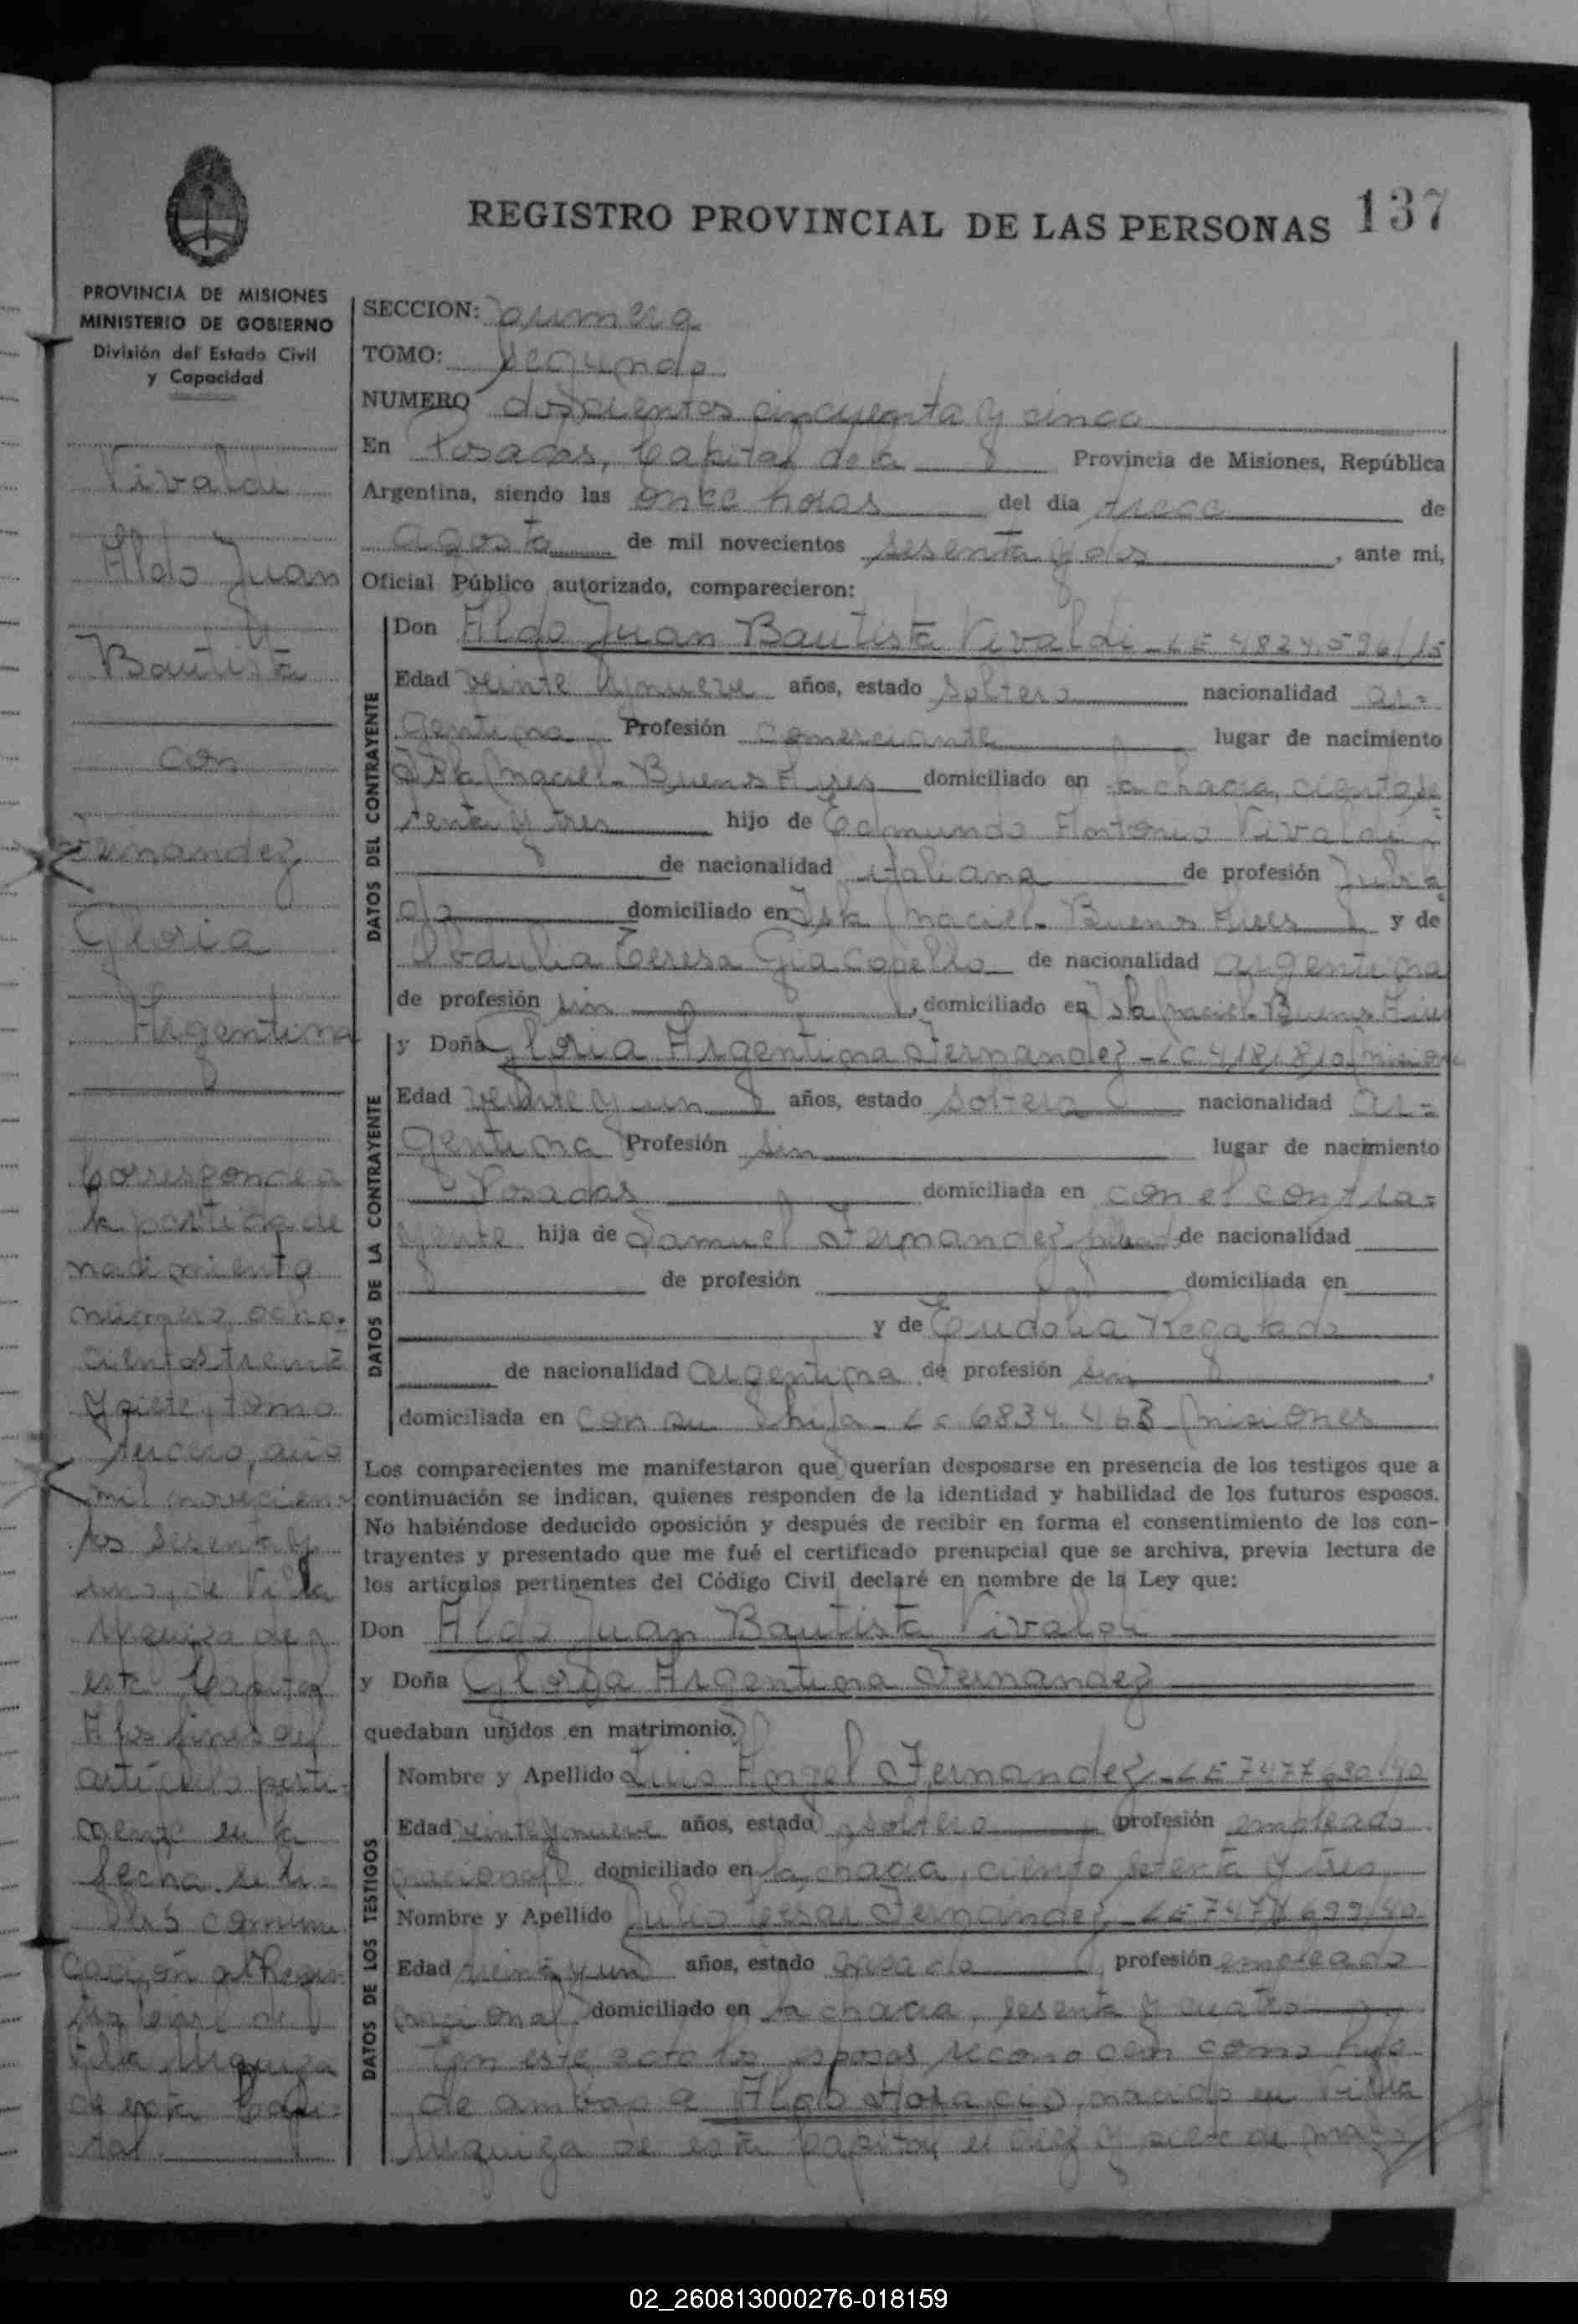 REGISTRO PROVINCIAL DE LAS PERSONAS 137
PROVINCIA DE MISIONES
MINISTERIO DE GOBIERNO
División del Estado Civil
y Capacidad
Vivaldi
Aldo Juan
Bautista
con
Fernandez
Gloria
Argentina
Corresponde a
la partida de
nacimiento
número ocho-
cientos treinta
y siete, tomo
tercero, año
mil novecien-
tos sesenta y
uno, de Villa
Urquiza de
esta Capital
A los fines del
artículo perti-
nente en la
fecha se li-
bró comuni
cación al Regis-
tro Civil de
Villa Urquiza
de esta Capi-
tal.
SECCION: primera
TOMO: segundo
NUMERO doscientos cincuenta y cinco
En Posadas, Capital de la Provincia de Misiones, República
Argentina, siendo las once horas del día trece de
agosto de mil novecientos sesenta y dos, ante mi,
Oficial Público autorizado, comparecieron:
DATOS DEL CONTRAYENTE
Don Aldo Juan Bautista Vivaldi - LE 4824.596/15
Edad veinte y nueve años, estado soltero nacionalidad ar-
gentina Profesión comerciante lugar de nacimiento
Isla Maciel - Buenos Aires domiciliado en la chacra, ciento se
tenta y tres hijo de Edmundo Antonio Vivaldi -
de nacionalidad italiana de profesión Jubila
do domiciliado en Isla Maciel - Buenos Aires y de
Obdulia Teresa Giacopello de nacionalidad argentina
de profesión sin, domiciliado en Isla Maciel - Buenos Aires
DATOS DE LA CONTRAYENTE
y Doña Gloria Argentina Fernandez - LC 4.181.810 Misiones
Edad veinte y un años, estado soltera nacionalidad ar-
gentina Profesión sin lugar de nacimiento
Posadas domiciliada en con el contra-
yente hija de Samuel Fernandez de nacionalidad
de profesión domiciliada en
y de Eudolia Regalado
de nacionalidad argentina de profesión sin,
domiciliada en con su hija - LC 6834.463 Misiones
Los comparecientes me manifestaron que querían desposarse en presencia de los testigos que a
continuación se indican, quienes responden de la identidad y habilidad de los futuros esposos.
No habiéndose deducido oposición y después de recibir en forma el consentimiento de los con-
trayentes y presentado que me fué el certificado prenupcial que se archiva, previa lectura de
los artículos pertinentes del Código Civil declaré en nombre de la Ley que:
Don Aldo Juan Bautista Vivaldi
y Doña Gloria Argentina Fernandez
quedaban unidos en matrimonio.
DATOS DE LOS TESTIGOS
Nombre y Apellido Luis Angel Fernandez - LE 7477680/40
Edad veinte y nueve años, estado soltero profesión empleado
nacional domiciliado en la chacra, ciento setenta y tres
Nombre y Apellido Julio César Fernández - LE
Edad treinta y un años, estado casado profesión empleado
nacional domiciliado en la chacra, sesenta y cuatro
En este acto los esposos reconocen como hijo
de ambos a Aldo Horacio, nacido en Villa
Urquiza de esta Capital el diez y siete de
02_260813000276-018159